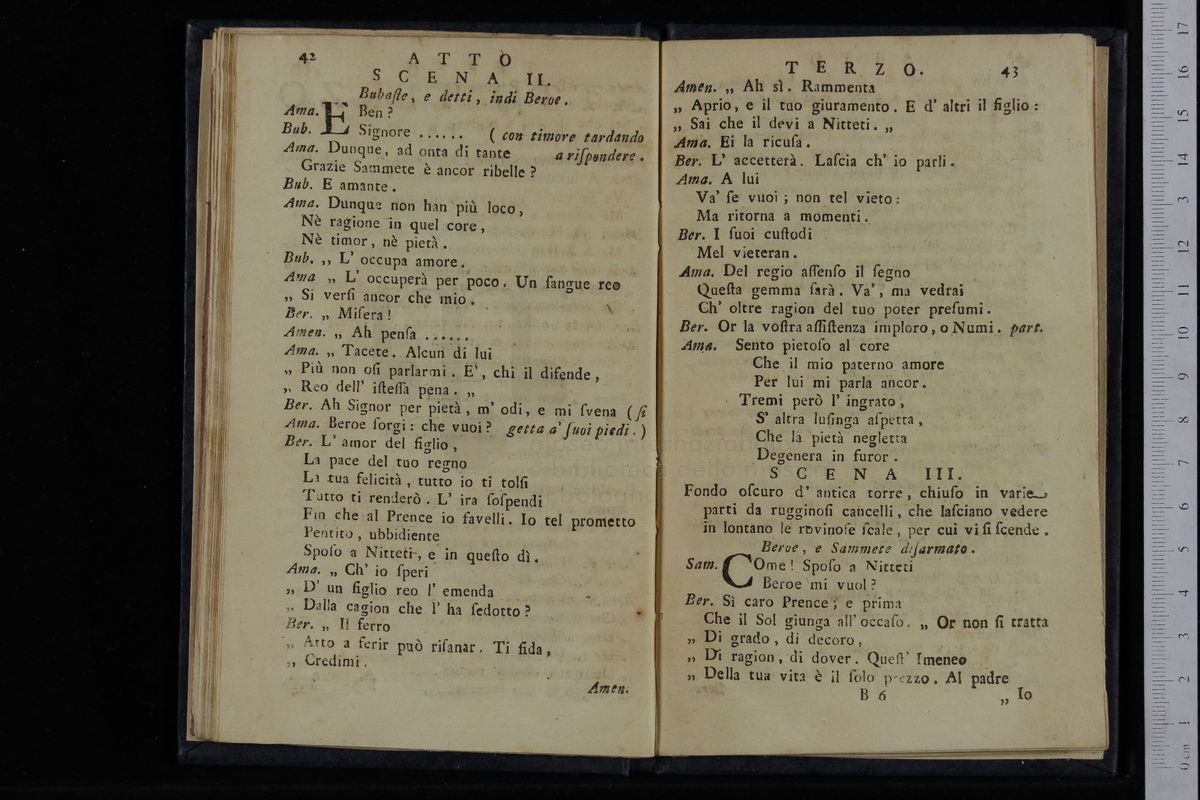 42
ATTO
SCENA II.
Bubaſte, e detti, indi Beroe.
Ama. È Ben?
Bub. Signore ...... ( con timore tardando
Ama. Dunque, ad onta di tante a riſpondere.
Grazie Sammete è ancor ribelle?
Bub. E amante.
Ama. Dunque non han più loco,
Nè ragione in quel core,
Nè timor, nè pietà.
Bub. ,, L' occupa amore.
Ama „ L' occuperà per poco. Un ſangue reo
„ Si verſi ancor che mio.
Ber. „ Miſera!
Amen. „ Ah penſa ......
Ama. „ Tacete. Alcun di lui
„ Più non oſi parlarmi. E', chi il difende,
„ Reo dell' iſteſſa pena. „
Ber. Ah Signor per pietà, m' odi, e mi ſvena (ſi
Ama. Beroe ſorgi: che vuoi? getta a' ſuoi piedi.)
Ber. L' amor del figlio,
La pace del tuo regno
La tua felicità, tutto io ti tolſi
Tutto ti renderò. L' ira ſoſpendi
Fin che al Prence io favelli. Io tel prometto
Pentito, ubbidiente
Spoſo a Nitteti, e in queſto dì.
Ama. „ Ch' io ſperi
„ D' un figlio reo l' emenda
„ Dalla cagion che l' ha ſedotto?
Ber. „ Il ferro
„ Atto a ferir può riſanar. Ti fida,
„ Credimi.
Amen.
TERZO.
43
Amen. „ Ah sì. Rammenta
„ Aprio, e il tuo giuramento. E d' altri il figlio:
„ Sai che il devi a Nitteti. „
Ama. Ei la ricuſa.
Ber. L' accetterà. Laſcia ch' io parli.
Ama. A lui
Va' ſe vuoi; non tel vieto:
Ma ritorna a momenti.
Ber. I ſuoi cuſtodi
Mel vieteran.
Ama. Del regio aſſenſo il ſegno
Queſta gemma ſarà. Va', ma vedrai
Ch' oltre ragion del tuo poter preſumi.
Ber. Or la voſtra aſſiſtenza imploro, o Numi. part.
Ama. Sento pietoſo al core
Che il mio paterno amore
Per lui mi parla ancor.
Tremi però l' ingrato,
S' altra luſinga aſpetta,
Che la pietà negletta
Degenera in furor.
SCENA III.
Fondo oſcuro d' antica torre, chiuſo in varie
parti da rugginoſi cancelli, che laſciano vedere
in lontano le rovinoſe ſcale, per cui vi ſi ſcende.
Beroe, e Sammete diſarmato.
Sam. COme! Spoſo a Nitteti
Beroe mi vuol?
Ber. Sì caro Prence; e prima
Che il Sol giunga all' occaſo. „ Or non ſi tratta
„ Di grado, di decoro,
„ Di ragion, di dover. Queſt' Imeneo
„ Della tua vita è il ſolo prezzo. Al padre
B 6
„ Io
0 cm 1 2 3 4 5 6 7 8 9 10 11 12 13 14 15 16 17